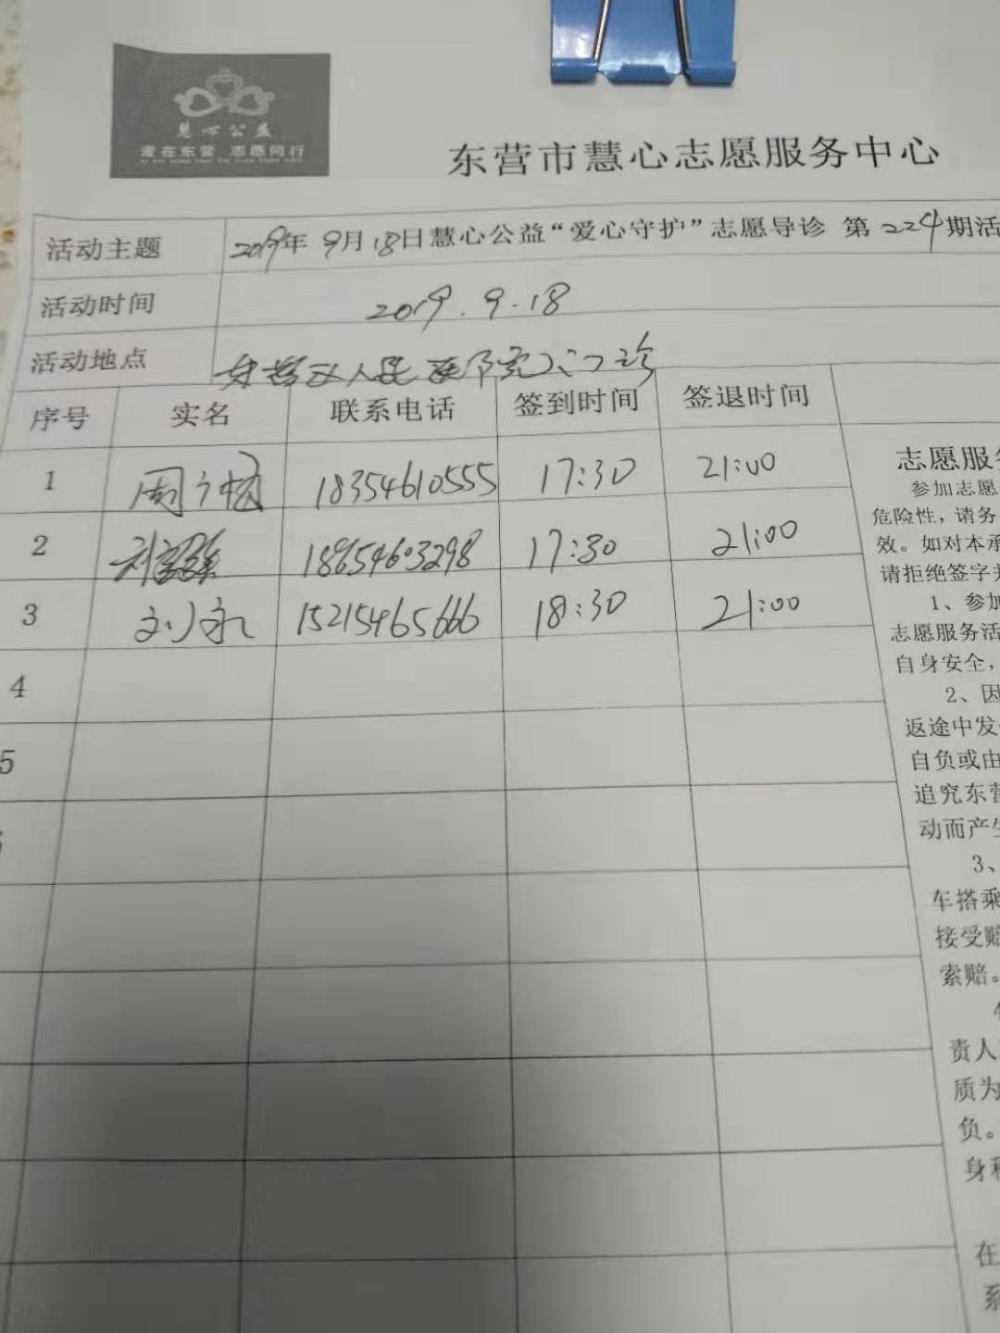 慧心公益
爱在东营 志愿同行
东营市慧心志愿服务中心
活动主题 2019年 9月18日慧心公益“爱心守护”志愿导诊 第224期活
活动时间 2019.9.18
活动地点 东营区人民医院门诊
序号 实名 联系电话 签到时间 签退时间
1 周 18354610555 17:30 21:00
2 18654603298 17:30 21:00
3 刘永 15215465666 18:30 21:00
4
5
志愿服务
参加志愿
危险性，请务
效。如对本承
请拒绝签字并
1、参加
志愿服务活
自身安全，
2、因
返途中发
自负或由
追究东营
动而产生
3、
车搭乘
接受赔
索赔。
责人
质为
负。
身和
在
系